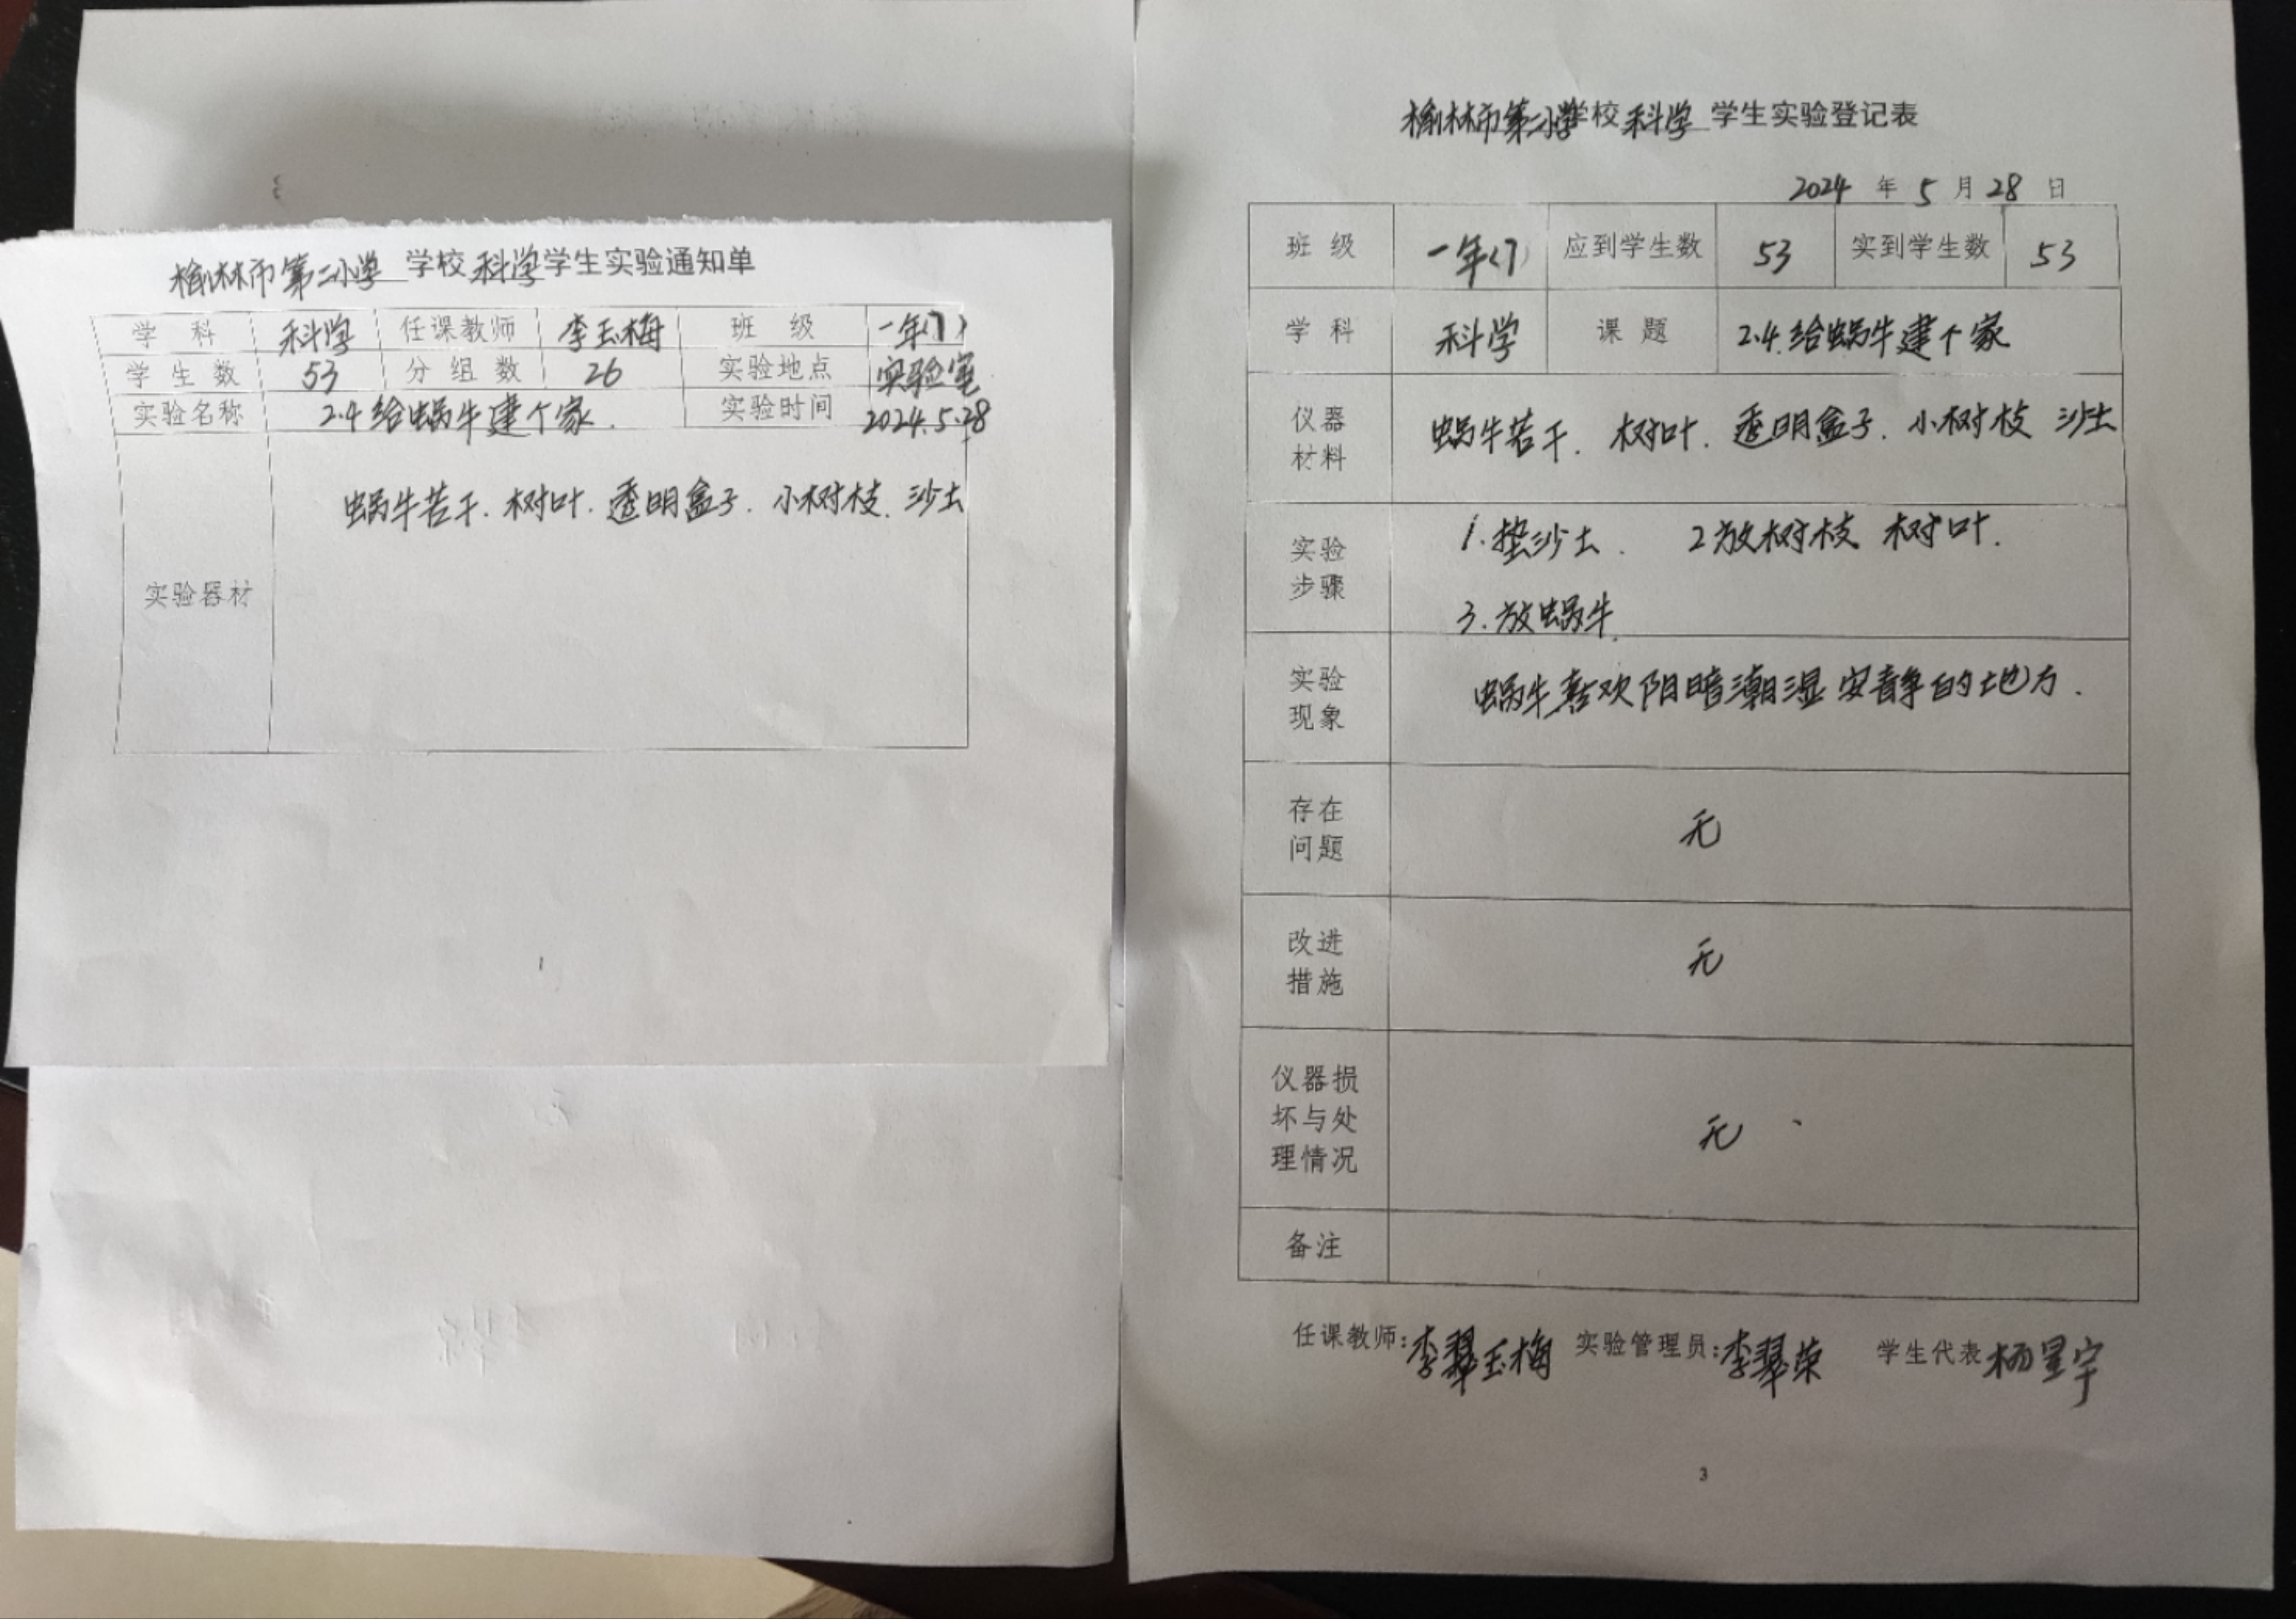 榆林市第二小学 学校 科学 学生实验通知单
学科 科学 任课教师 李玉梅 班级 一年(7)
学生数 53 分组数 26 实验地点 实验室
实验名称 2.4 给蜗牛建个家. 实验时间 2024.5.28
实验器材 蜗牛若干. 树叶. 透明盒子. 小树枝. 沙土
榆林市第二小学学校 科学 学生实验登记表
2024 年 5 月 28 日
班级 一年(7) 应到学生数 53 实到学生数 53
学科 科学 课题 2.4.给蜗牛建个家
仪器
材料
蜗牛若干. 树叶. 透明盒子. 小树枝 沙土
实验
步骤
1.垫沙土. 2放树枝 树叶.
3.放蜗牛.
实验
现象
蜗牛喜欢阴暗潮湿 安静的地方.
存在
问题
无
改进
措施
无
仪器损
坏与处
理情况
无
备注
任课教师:李玉梅 实验管理员:李翠荣 学生代表 杨星宇
3